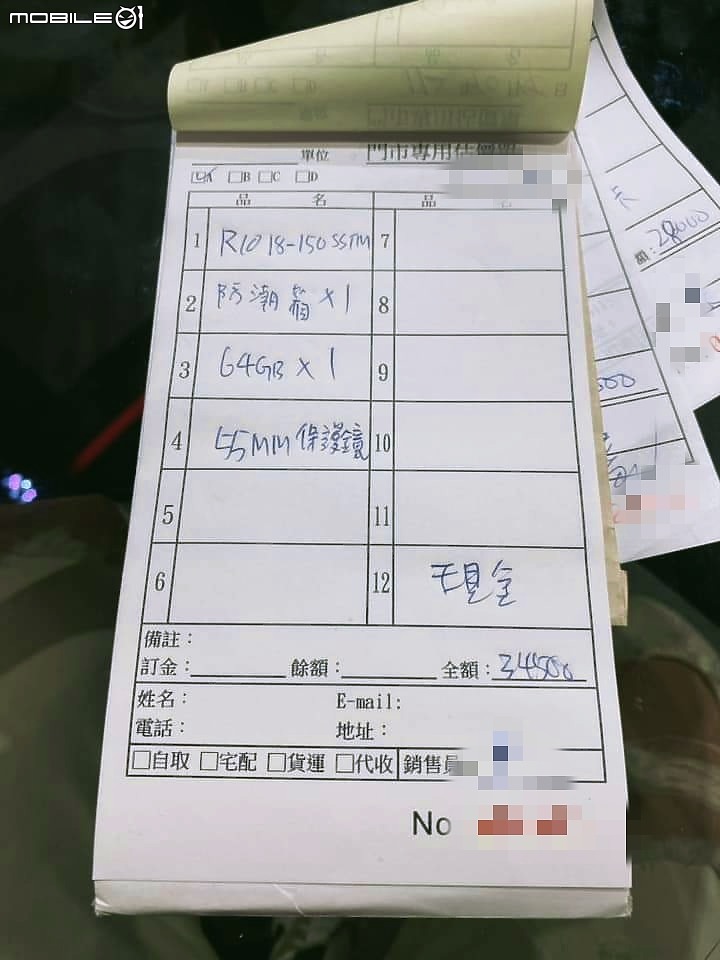 MOBILE01
單位 門市專用估價單
☑A □B □C □D
品 名 品 名
1 R10 18-150 SSTM 7
2 防潮箱 x 1 8
3 64GB x 1 9
4 55MM 保護鏡 10
5 11
6 12 現金
備註：
訂金： 餘額： 全額：34500
姓名： E-mail:
電話： 地址：
□自取 □宅配 □貨運 □代收 銷售員
No
額：28000